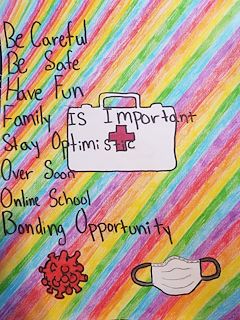 Be Careful
Be Safe
Have Fun
Family Is Important
Stay Optimistic
Over Soon
Online School
Bonding Opportunity